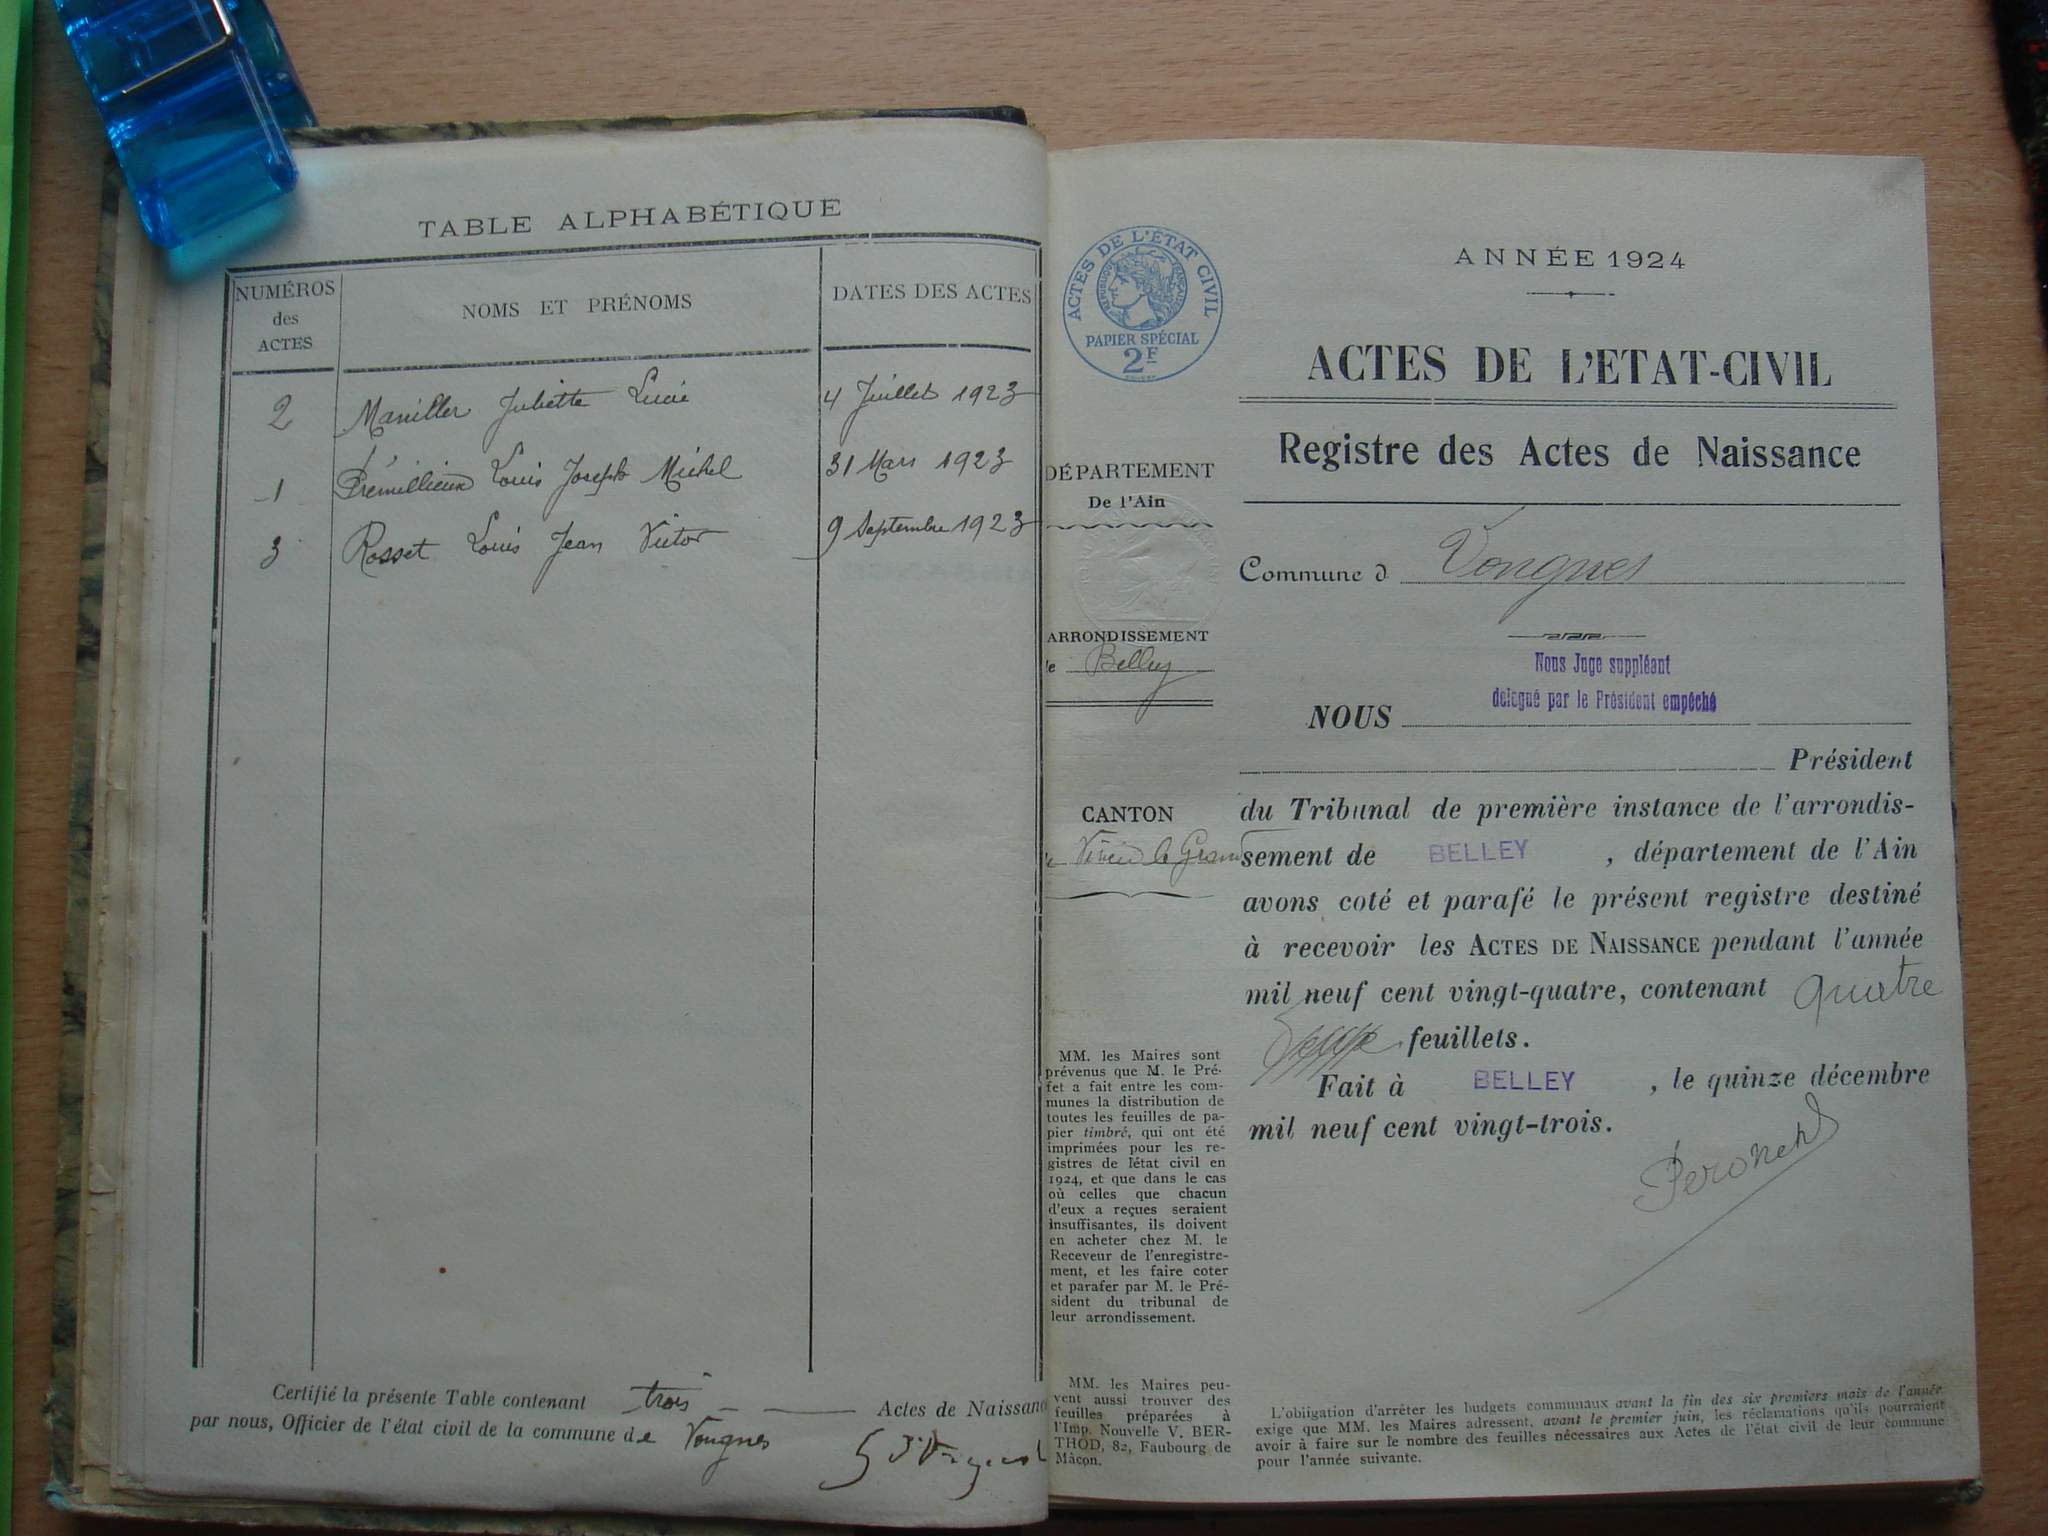 TABLE ALPHABÉTIQUE
NUMÉROS des ACTES
NOMS ET PRÉNOMS
DATES DES ACTES
2 Juliette Lucie 4 Juillet 1923
1 Prémillieux Louis Joseph Michel 31 Mars 1923
3 Rosset Louis Jean Victor 9 Septembre 1923
Certifié la présente Table contenant trois Actes de Naissanc
par nous, Officier de l'état civil de la commune de Vongnes
ACTES DE L'ÉTAT CIVIL
RÉPUBLIQUE FRANÇAISE
PAPIER SPÉCIAL
2F
DÉPARTEMENT
De l'Ain
ARRONDISSEMENT
de Belley
CANTON
le Grand
MM. les Maires sont
prévenus que M. le Pré-
fet a fait entre les com-
munes la distribution de
toutes les feuilles de pa-
pier timbré, qui ont été
imprimées pour les re-
gistres de l'état civil en
1924, et que dans le cas
où celles que chacun
d'eux a reçues seraient
insuffisantes, ils doivent
en acheter chez M. le
Receveur de l'enregistre-
ment, et les faire coter
et parafer par M. le Pré-
sident du tribunal de
leur arrondissement.
MM. les Maires peu-
vent aussi trouver des
feuilles préparées à
l'Imp. Nouvelle V. BER-
THOD, 82, Faubourg de
Mâcon.
ANNÉE 1924
ACTES DE L'ETAT-CIVIL
Registre des Actes de Naissance
Commune d Vongnes
Nous Juge suppléant
delegué par le Président empêché
NOUS
Président
du Tribunal de première instance de l'arrondis-
sement de BELLEY, département de l'Ain
avons coté et parafé le présent registre destiné
à recevoir les ACTES DE NAISSANCE pendant l'année
mil neuf cent vingt-quatre, contenant quatre
feuillets.
Fait à BELLEY, le quinze décembre
mil neuf cent vingt-trois.
L'obligation d'arrêter les budgets communaux avant la fin des six premiers mois de l'année
exige que MM. les Maires adressent, avant le premier juin, les réclamations qu'ils pourraient
avoir à faire sur le nombre des feuilles nécessaires aux Actes de l'état civil de leur commune
pour l'année suivante.